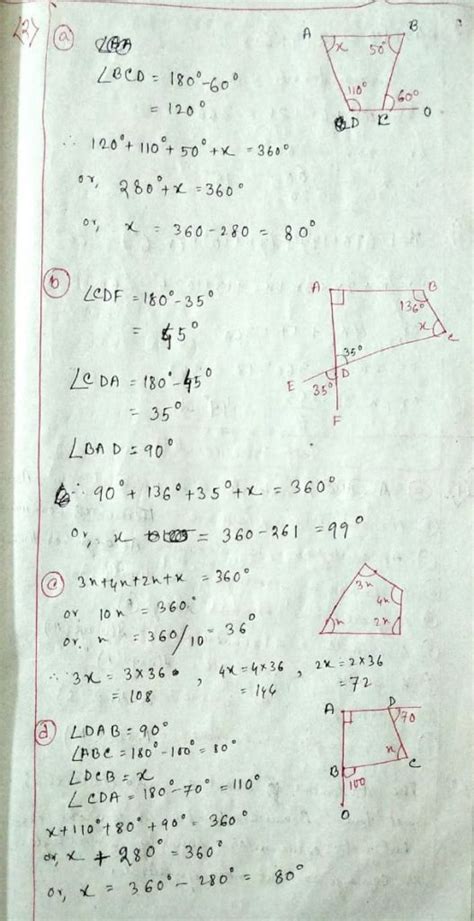 (2) (a)
∠BCD = 180° - 60°
= 120°
∴ 120° + 110° + 50° + x = 360°
or, 280° + x = 360°
or, x = 360 - 280 = 80°
A B
x 50°
110° 60°
D C O
(b)
∠CDF = 180° - 35°
= 45°
∠CDA = 180° - 45°
= 35°
∠BAD = 90°
∴ 90° + 136° + 35° + x = 360°
or, x = 360 - 261 = 99°
A B
136°
x C
35°
E 35° D
F
(c) 3x + 4x + 2x + x = 360°
or 10x = 360°
or. x = 360/10 = 36°
∴ 3x = 3×36 , 4x = 4×36 , 2x = 2×36
= 108 = 144 = 72
3x
4x
x 2x
(d) ∠DAB = 90°
∠ABC = 180° - 100° = 80°
∠DCB = x
∠CDA = 180° - 70° = 110°
x + 110° + 80° + 90° = 360°
or, x + 280° = 360°
or, x = 360° - 280° = 80°
A D
70
x C
B 100
O